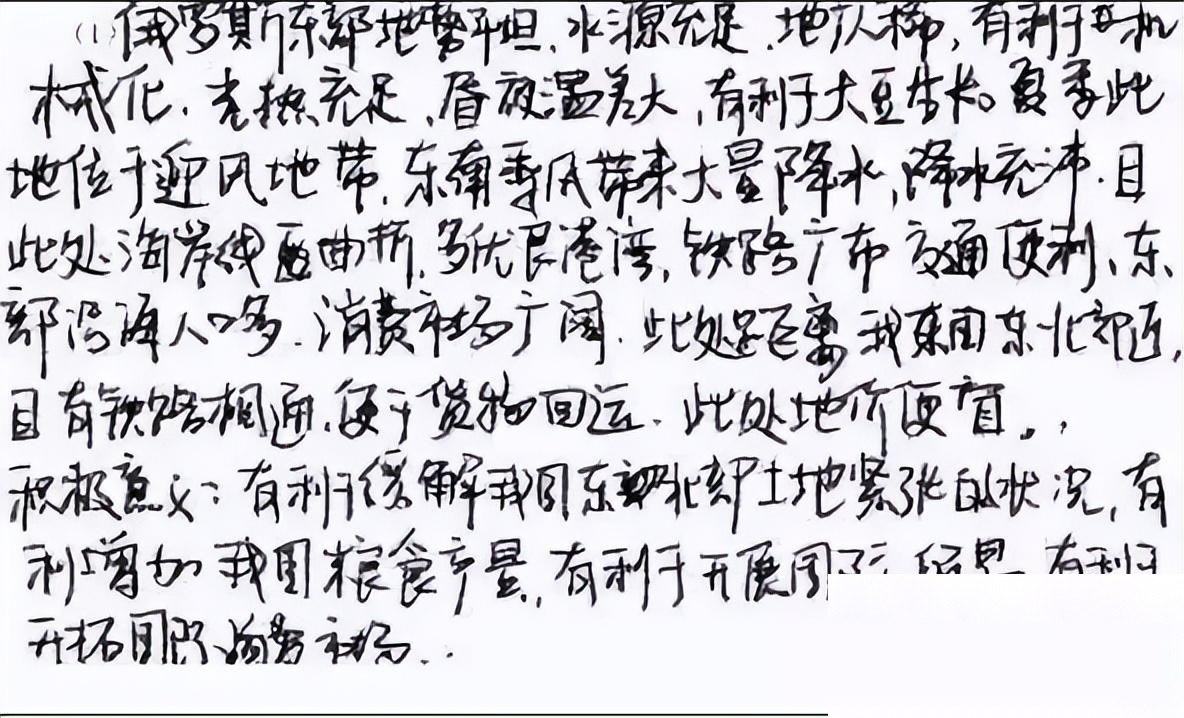 (1)俄罗斯东部地势平坦、水源充足、地广人稀,有利于机
械化、光热充足、昼夜温差大,有利于大豆生长。夏季此
地位于迎风地带,东南季风带来大量降水,降水充沛.且
此处海岸线曲折,多优良港湾,铁路广布交通便利、东
部沿海人口多.消费市场广阔.此处距离我国东北部近,
且有铁路相通,便于货物回运.此处地价便宜。
积极意义:有利于缓解我国东北部土地紧张的状况,有
利增加我国粮食产量,有利于开展国际 有利于
开拓国际 市场.